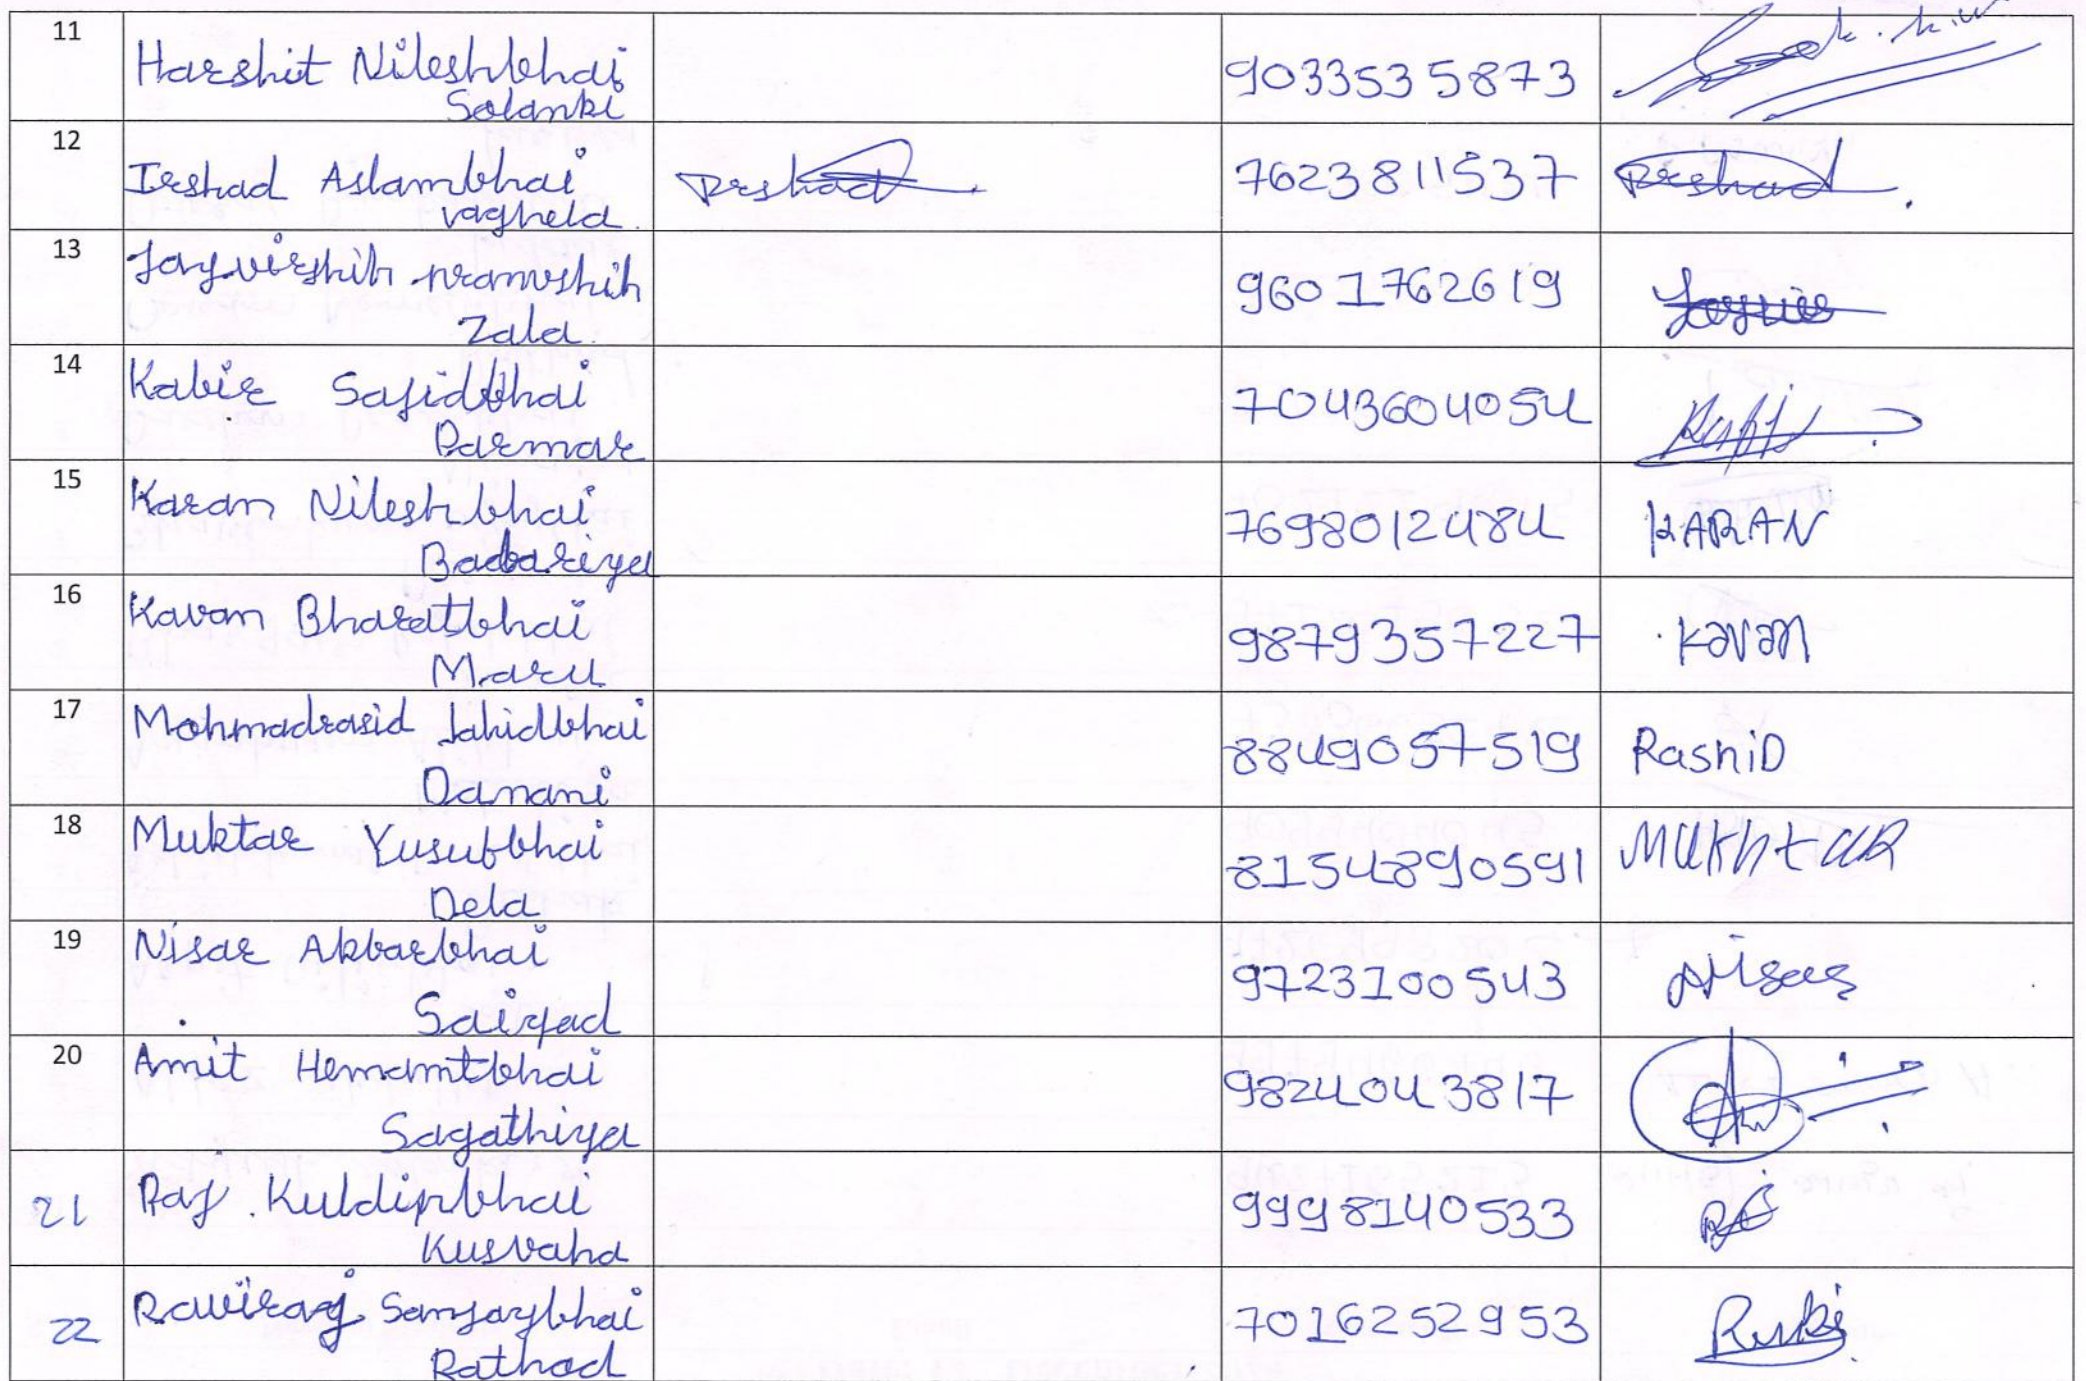 11
Harshit Nileshbhai
Solanki
9033535873
12
Irshad Aslambhai
vaghela.
Irshad
7623811537
Irshad
13
Jayvirshih
Zala
9601762619
14
Kabir Sajidbhai
Parmar
7043604054
15
Karan Nileshbhai
Babariya
7698012484
KARAN
16
Kavan Bharatbhai
Maru
9879357227
Kavan
17
Mohmadrasid Jahidbhai
Danani
8849057519
RashiD
18
Muktar Yusufbhai
Dela
8154890591
MUKHtUR
19
Nisar Akbarbhai
Saiyad
9723100543
Nisar
20
Amit Hemamtbhai
Sagathiya
9824043817
21
Raj. Kuldipbhai
Kusvaha
9998140533
22
Raviraj Sanjaybhai
Rathod
7016252953